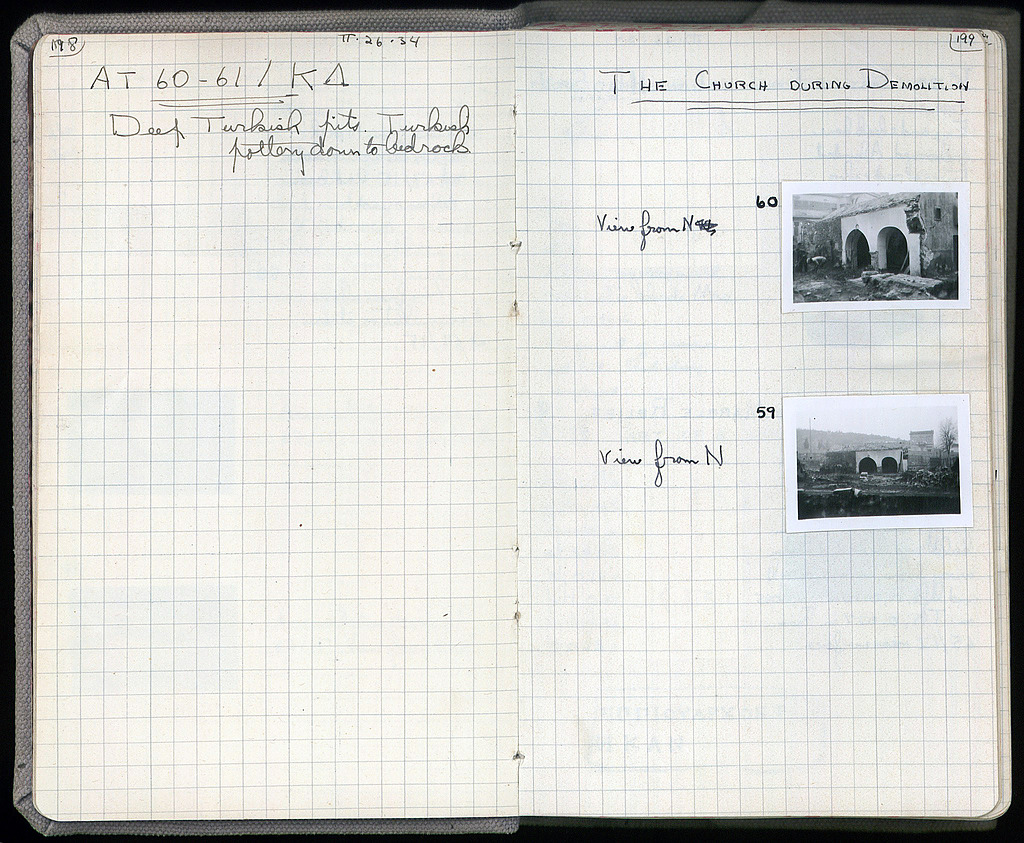 198
II·26·34
AT 60-61/ΚΔ
Deep Turkish pits. Turkish
pottery down to bedrock
199
THE CHURCH DURING DEMOLITION
60
View from N
59
View from N